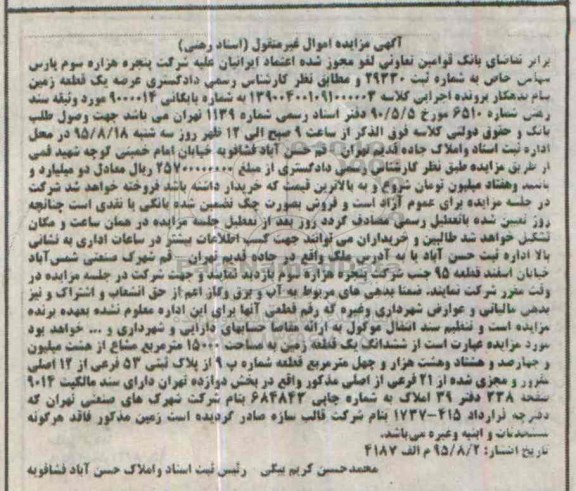 آگهی مزایده اموال غیرمنقول (اسناد رهنی)
برابر تقاضای بانک قوامین تعاونی لغو مجوز شده اعتماد ایرانیان علیه شرکت پنجره هزاره سوم پارس
سهامی خاص به شماره ثبت ۲۹۳۳۰ و مطابق نظر کارشناس رسمی دادگستری عرصه یک قطعه زمین
بنام بدهکار پرونده اجرایی کلاسه ۱۳۹۰۰۴۰۰۱۰۹۱۰۰۰۰۰۳ به شماره بایگانی ۹۰۰۰۰۱۴ مورد وثیقه سند
رهنی شماره ۶۵۱۰ مورخ ۹۰/۵/۵ دفتر اسناد رسمی شماره ۱۱۳۹ تهران می باشد جهت وصول طلب
بانک و حقوق دولتی کلاسه فوق الذکر از ساعت ۹ صبح الی ۱۲ ظهر روز سه شنبه ۹۵/۸/۱۸ در محل
اداره ثبت اسناد واملاک جاده قدیم تهران - قم حسن آباد فشافویه خیابان امام خمینی کوچه شهید قمی
از طریق مزایده طبق نظر کارشناس رسمی دادگستری از مبلغ ۲۵۷۰۰۰۰۰۰۰۰ ریال معادل دو میلیارد و
پانصد وهفتاد میلیون تومان شروع و به بالاترین قیمت که خریدار داشته باشد فروخته خواهد شد شرکت
در جلسه مزایده برای عموم آزاد است و فروش بصورت چک تضمین شده بانکی یا نقدی است چنانچه
روز تعیین شده باتعطیل رسمی مصادف گردد روز بعد از تعطیل جلسه مزایده در همان ساعت و مکان
تشکیل خواهد شد طالبین و خریداران می توانند جهت کسب اطلاعات بیشتر در ساعات اداری به نشانی
بالا اداره ثبت حسن آباد یا به آدرس ملک واقع در جاده قدیم تهران - قم شهرک صنعتی شمس آباد
خیابان اسفند قطعه ۹۵ جنب شرکت پنجره هزاره سوم بازدید نمایند و جهت شرکت در جلسه مزایده در
وقت مقرر شرکت نمایند. ضمنا بدهی های مربوط به آب و برق وگاز اعم از حق انشعاب و اشتراک و نیز
بدهی مالیاتی و عوارض شهرداری وغیره که رقم قطعی آنها برای این اداره معلوم نشده بعهده برنده
مزایده است و تنظیم سند انتقال موکول به ارائه مفاصا حسابهای دارایی و شهرداری و ... خواهد بود
مورد مزایده عبارت است از ششدانگ یک قطعه زمین به مساحت ۱۵۰۰۰ مترمربع مشاع از هشت میلیون
و چهارصد و هشتاد وهشت هزار و چهل مترمربع قطعه شماره پ ۹ از پلاک ثبتی ۵۳ فرعی از ۱۲ اصلی
مفروز و مجزی شده از ۲۱ فرعی از اصلی مذکور واقع در بخش دوازده تهران دارای سند مالکیت ۹۰۱۴
صفحه ۲۳۸ دفتر ۳۹ املاک به شماره چاپی ۶۸۴۸۴۲ بنام شرکت شهرک های صنعتی تهران که
دفترچه قرارداد ۴۱۵-۱۷۳۷ بنام شرکت قالب سازه صادر گردیده است زمین مذکور فاقد هرگونه
مستحدثات و ابنیه وغیره می باشد.
تاریخ انتشار: ۹۵/۸/۲ م الف ۴۱۸۷
محمدحسن کریم بیگی رئیس ثبت اسناد واملاک حسن آباد فشافویه